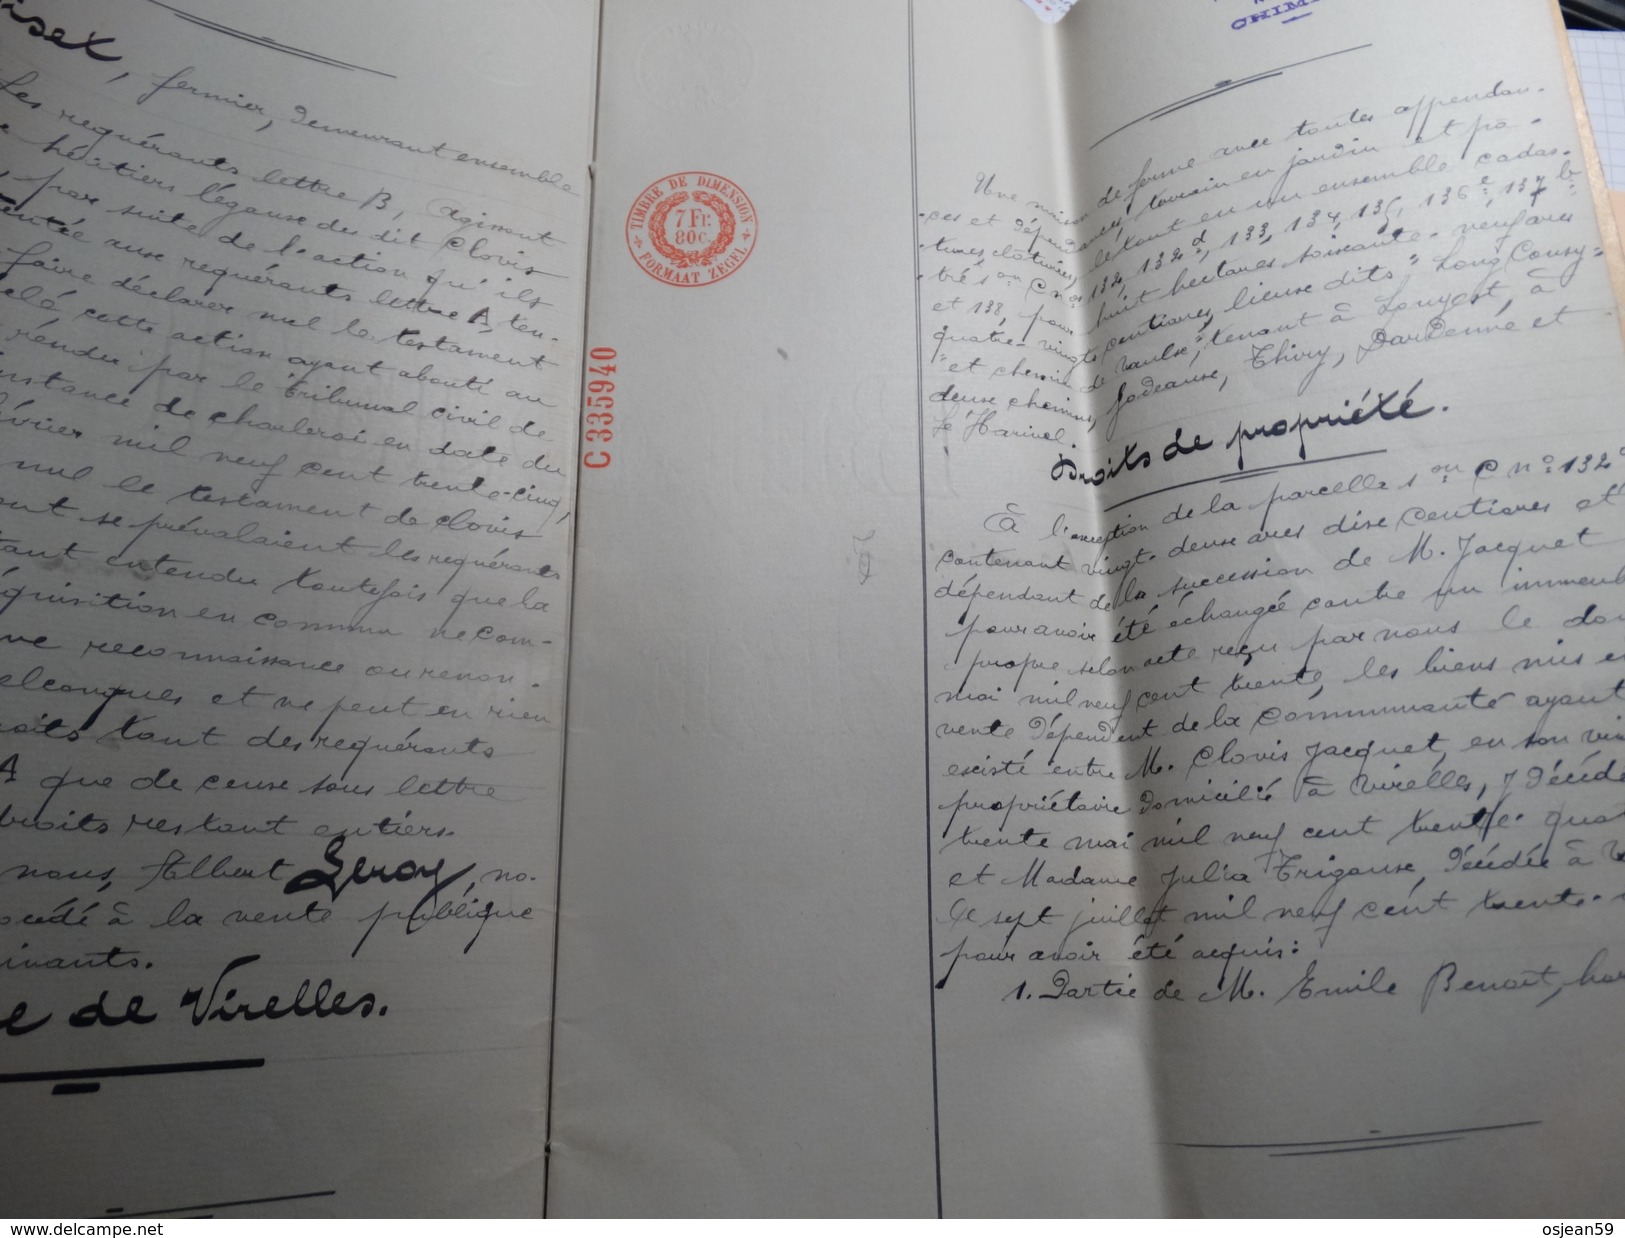 fermier, demeurant ensemble
Les requérants lettre B, agissant
héritiers légaux du dit Clovis
par suite de l'action qu'ils
aux requérants lettre A, ten-
faire déclarer nul le testament
cette action ayant abouti au
rendu par le Tribunal civil de
instance de Charleroi en date du
février mil neuf cent trente-cinq,
nul le testament de Clovis
se prévalaient les requérants
entendu toutefois que la
en commun ne com-
reconnaissance ou renon-
et ne peut en rien
tant des requérants
A que de ceux sous lettre
droits restant entiers.
nous, Albert Leroy, no-
à la vente publique
de Virelles.
TIMBRE DE DIMENSION
7 Fr.
80c.
FORMAAT ZEGEL
C335940
CHIM
Une maison de ferme avec toutes appendan-
ces et dépendances, terrain en jardin et pâ-
tures, clôturées, le tout en un ensemble cadas-
tré son C nos 132, 132d, 133, 134, 135, 136e, 137b
et 138, pour huit hectares soixante-neuf ares
quatre-vingts centiares, lieux dits "Long Cousy"
"et chemin de vaulx", tenant à Longest, à
deux chemins, Jadeaux, Thiry, Dardenne et
Le Harivel.
Droits de propriété.
A l'exception de la parcelle son C no 132d
contenant vingt-deux ares dix centiares et
dépendant de la succession de M. Jacquet
pour avoir été échangée contre un immeubl
propre selon acte reçu par nous le dou
mai mil neuf cent trente, les biens mis en
vente dépendent de la communauté ayant
existé entre M. Clovis Jacquet, en son viv
propriétaire domicilié à Virelles, y décédé
trente mai mil neuf cent trente-quat
et Madame Julia Trigaux, décédée à V
le sept juillet mil neuf cent trente-
pour avoir été acquis:
1. Partie de M. Emile Benoit,
delcampe.net
osjean59